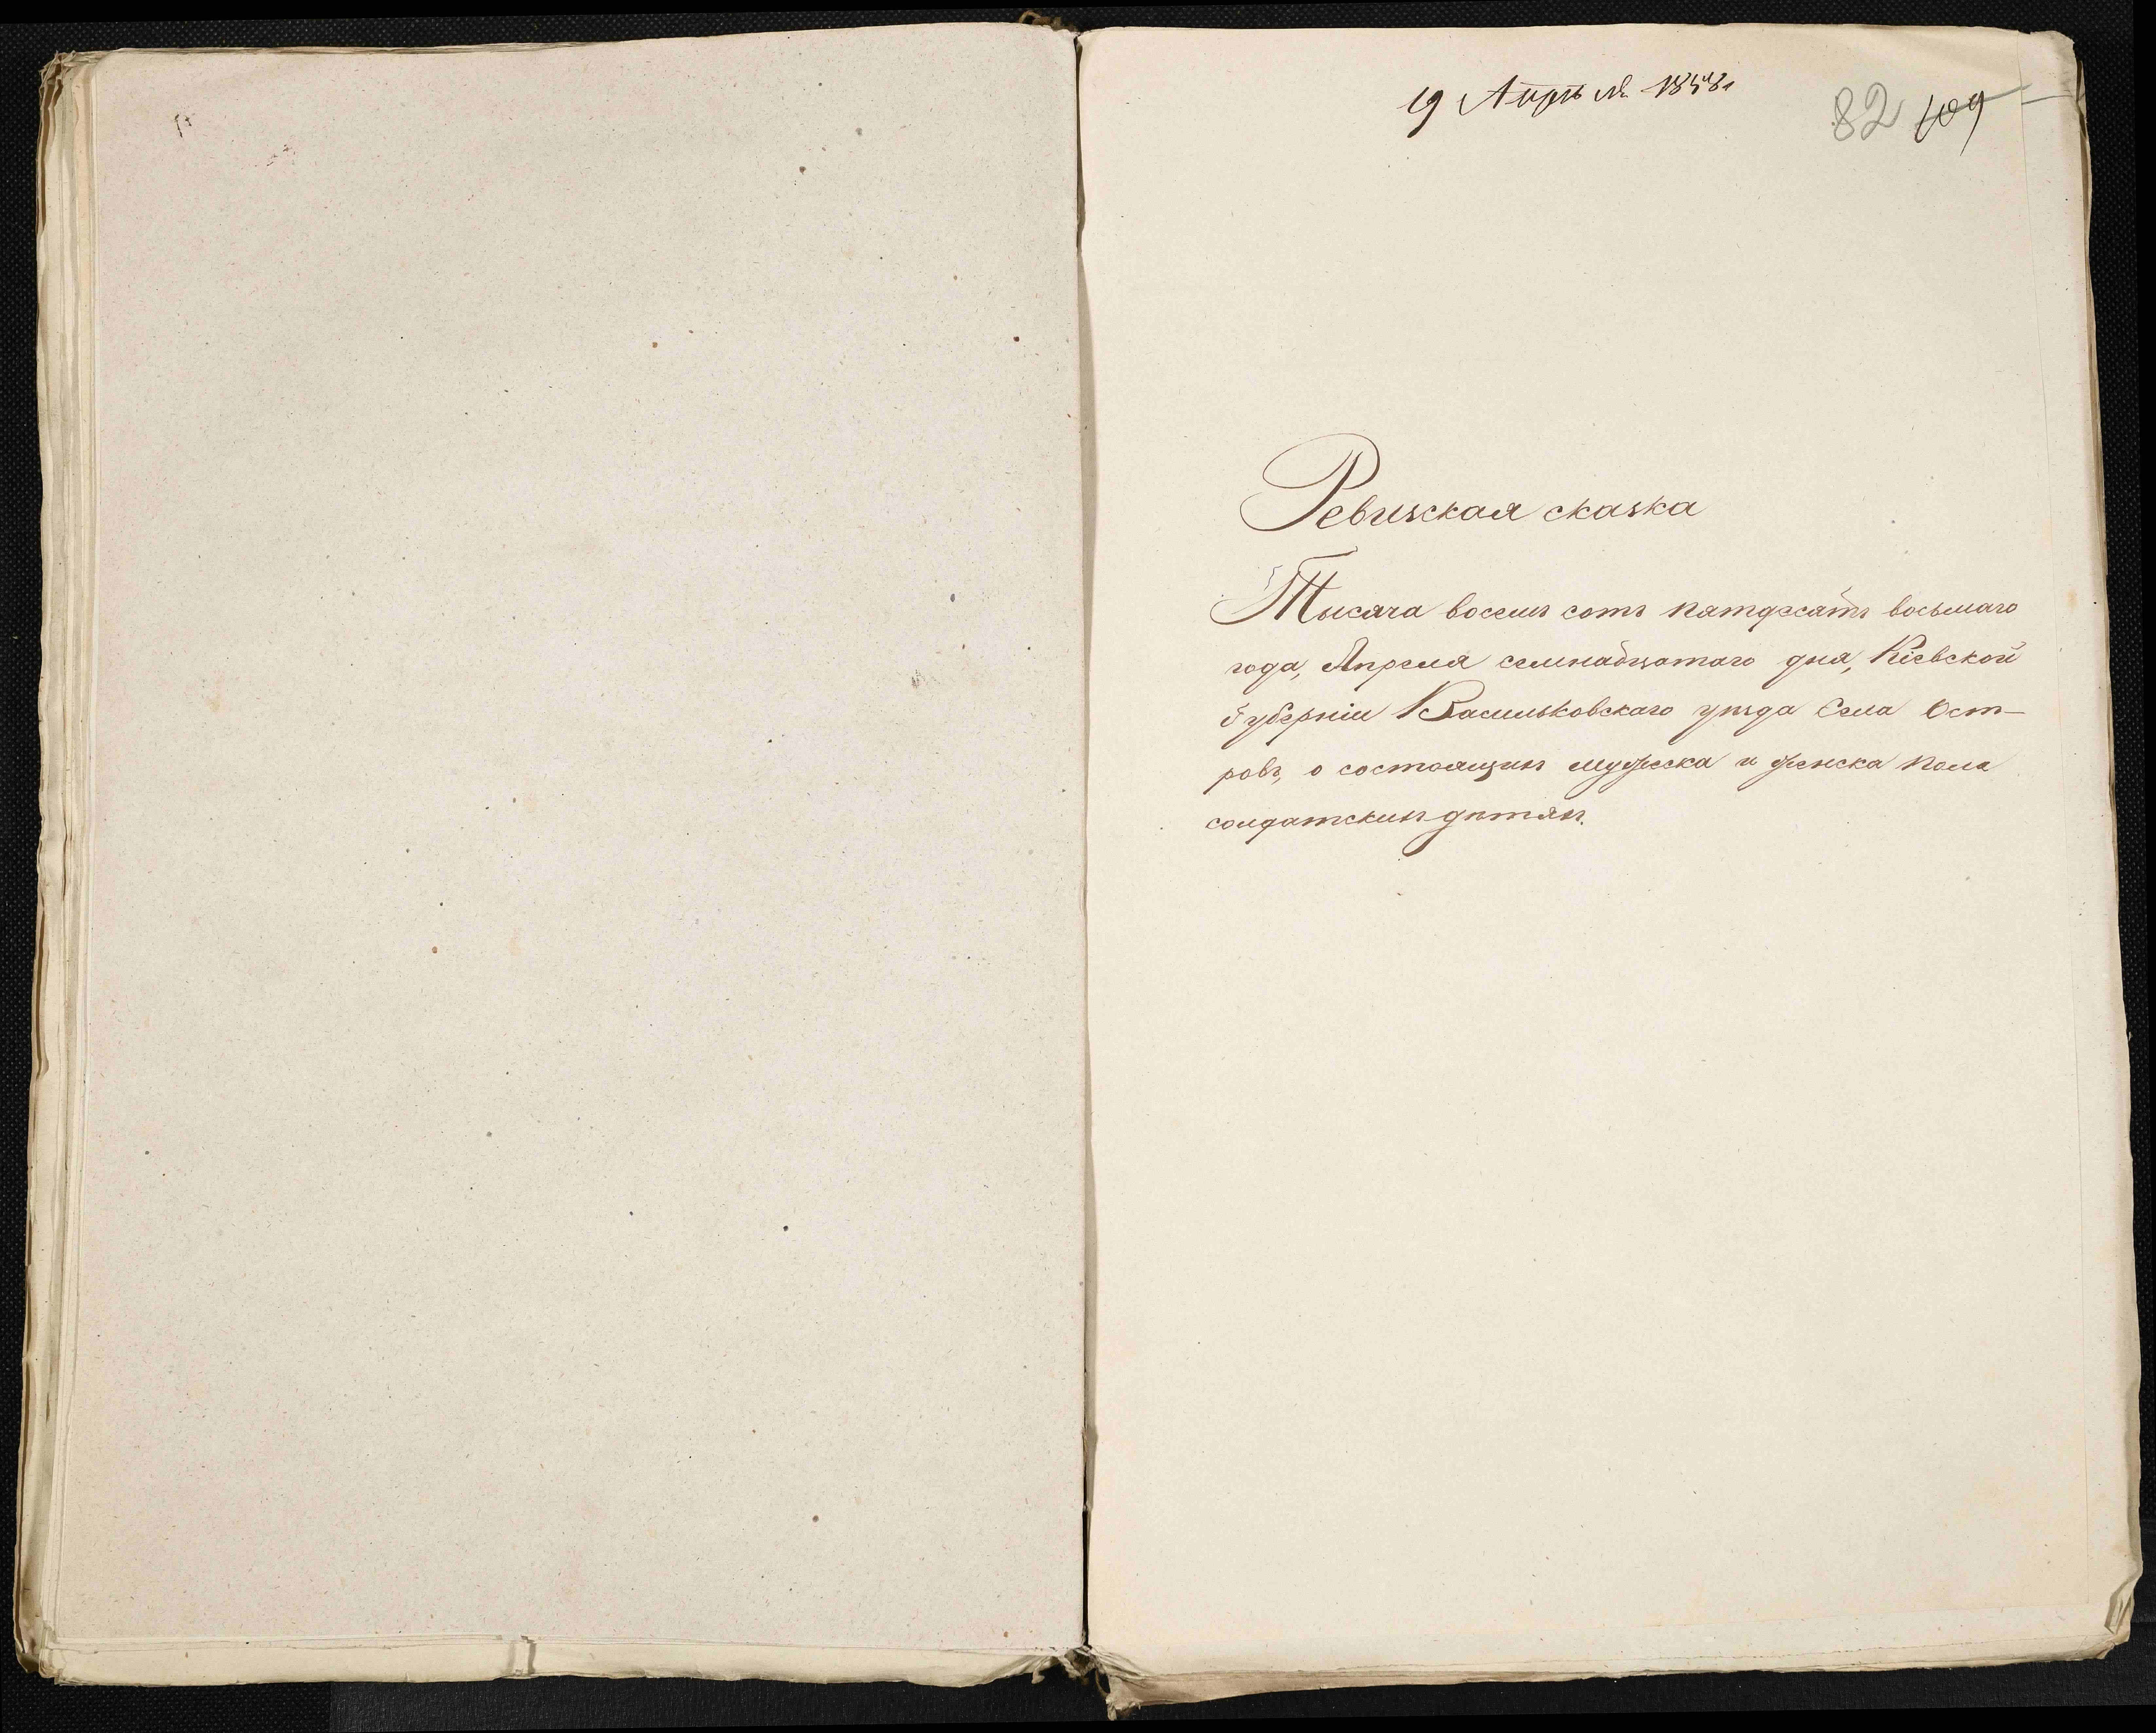 19 Апрѣля 1858
82 109
Ревизская сказка
Тысяча восемъ сотъ патдесатъ восьмаго
года, Апреля семнадцатаго дня, Кіевской
Губерніи Васильковскаго уѣзда Села Ост-
ровъ, о состоящихъ мужеска и женска пола
солдатскихъ дѣтяхъ.